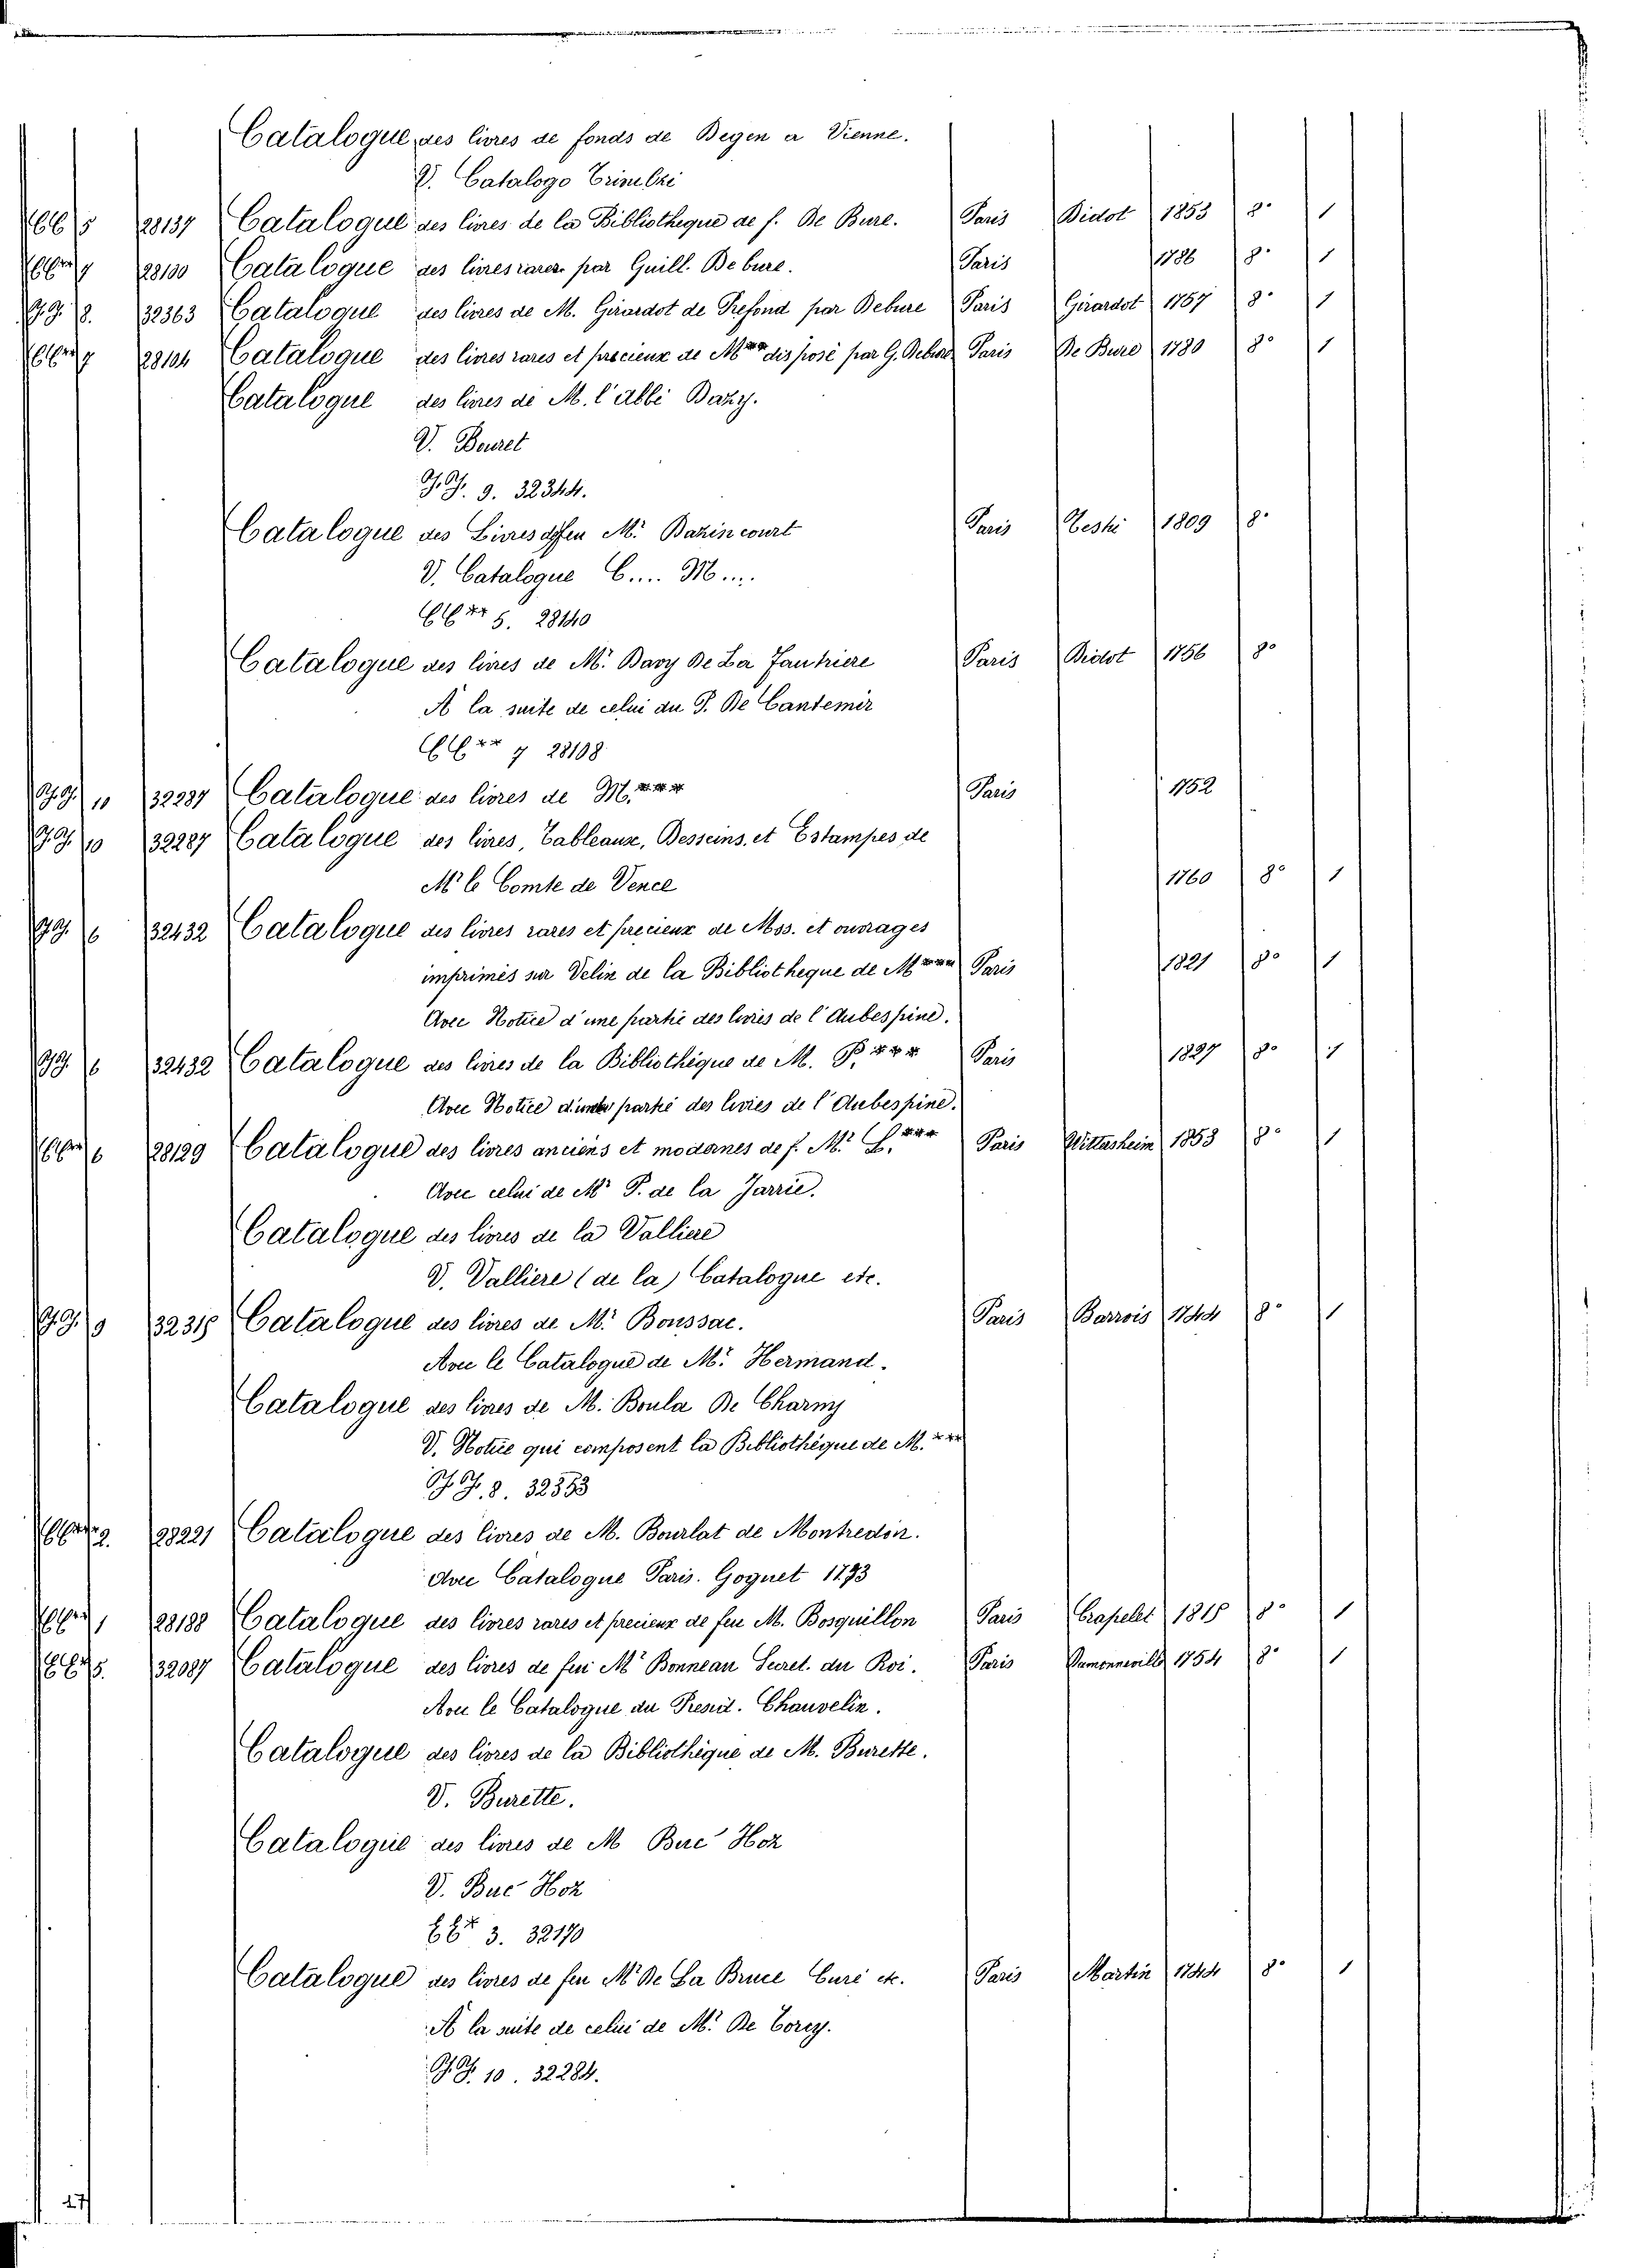 Catalogue des livres de fonds de Degen a Vienne.
V. Catalogo Trivulzi
5 28137 Catalogue des livres de la Bibliotheque de f. De Bure. Paris Didot 1853 8° 1
7 28100 Catalogue des livres rares par Guill. De bure. Paris 1786 8° 1
8. 32363 Catalogue des livres de M. Girardot de Prefond par Debure Paris Girardot 1757 8° 1
7 28104 Catalogue des livres rares et precieux de M*** disposé par G. Debure Paris De Bure 1780 8° 1
Catalogue des livres de M. l'abbé Bazy.
V. Beuret
G.G. 9. 32344.
Catalogue des Livres de feu M. Bazincourt Paris 1809 8°
V. Catalogue C.... M....
CC** 5. 28140
Catalogue des livres de M. Davy De La Fautriere Paris Didot 1756 8°
A la suite de celui du P. De Cantemir
CC** 7 28108
G.G. 10 32287 Catalogue des livres de M.*** Paris 1752
G.G. 10 32287 Catalogue des livres, Tableaux, Desseins, et Estampes de
M. le Comte de Vence 1760 8° 1
G.G. 6 32432 Catalogue des livres rares et precieux de Mss. et ouvrages
imprimés sur Velin de la Bibliotheque de M*** Paris 1821 8° 1
Avec Notice d'une partie des livres de l'Aubespine.
G.G. 6 32432 Catalogue des livres de la Bibliothèque de M. P.*** Paris 1827 8° 1
Avec Notice d'une partie des livres de l'Aubespine.
6 28129 Catalogue des livres anciens et modernes de f. M. *** Paris Wittersheim 1853 8° 1
Avec celui de M. P. de la Jarrie.
Catalogue des livres de la Valliere
V. Valliere (de la) Catalogue etc.
G.G. 9 32315 Catalogue des livres de M. Boussac. Paris Barrois 1744 8° 1
Avec le Catalogue de M. Hermand.
Catalogue des livres de M. Boula De Charny
V. Notice qui composent la Bibliothèque de M.***
G.G. 8. 32353
2. 28221 Catalogue des livres de M. Bourlat de Montredin.
Avec Catalogue Paris. Goguet 1793
1 28188 Catalogue des livres rares et precieux de feu M. Bosquillon Paris Crapelet 1815 8° 1
5. 32087 Catalogue des livres de feu M. Bonneau Secret. du Roi. Paris Damonneville 1754 8° 1
Avec le Catalogue du Presid. Chauvelin.
Catalogue des livres de la Bibliothèque de M. Burette.
V. Burette.
Catalogue des livres de M Buc' Hoz
V. Buc' Hoz
CC* 3. 32170
Catalogue des livres de feu M. De La Brue Curé etc. Paris Martin 1744 8° 1
A la suite de celui de M. De Torcy.
G.G. 10. 32284.
27